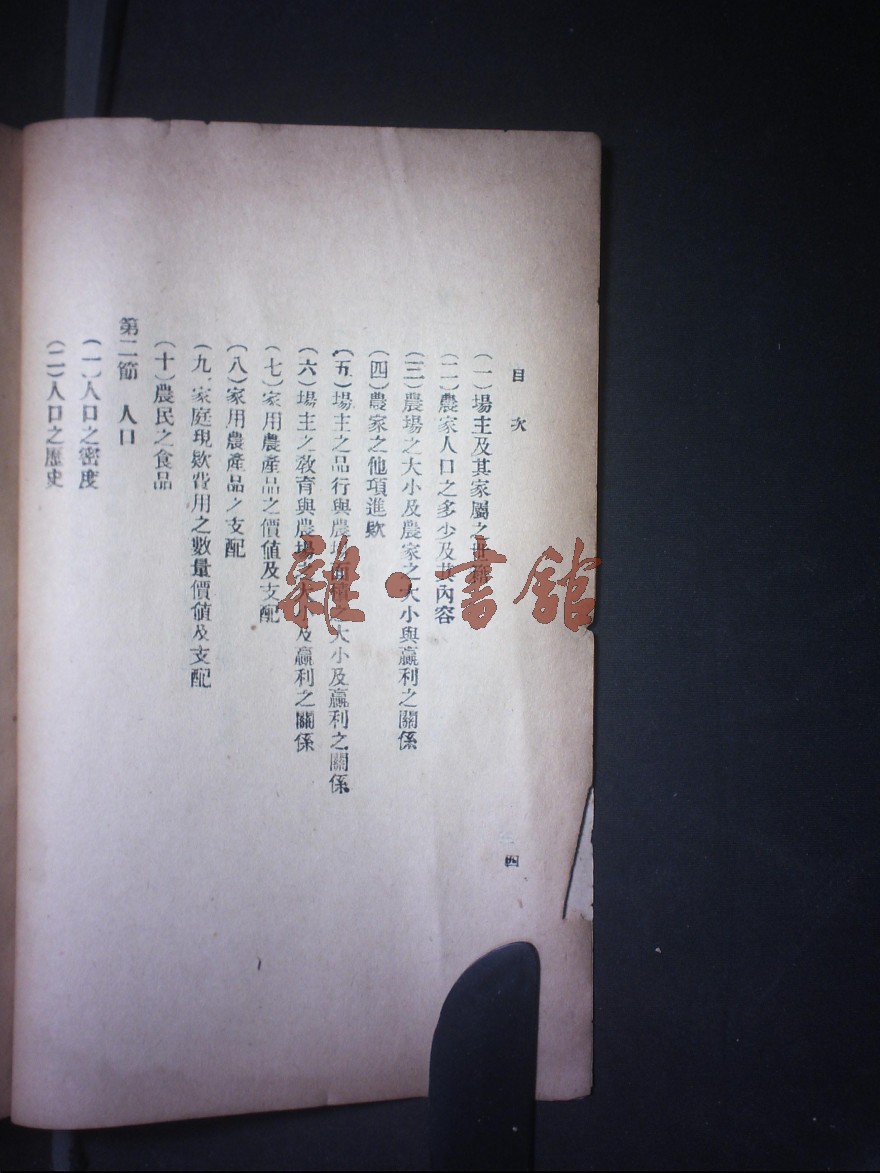 目次
(一)場主及其家屬之世
(二)農家人口之多少及其內容
(三)農場之大小及農家之大小與贏利之關係
(四)農家之他項進欵
(五)場主之品行與農場面積之大小及贏利之關係
(六)場主之教育與農場之大小及贏利之關係
(七)家用農產品之價值及支配
(八)家用農產品之支配
(九)家庭現欵費用之數量價値及支配
(十)農民之食品
第二節 人口
(一)人口之密度
(二)人口之歷史
四
雜·書館